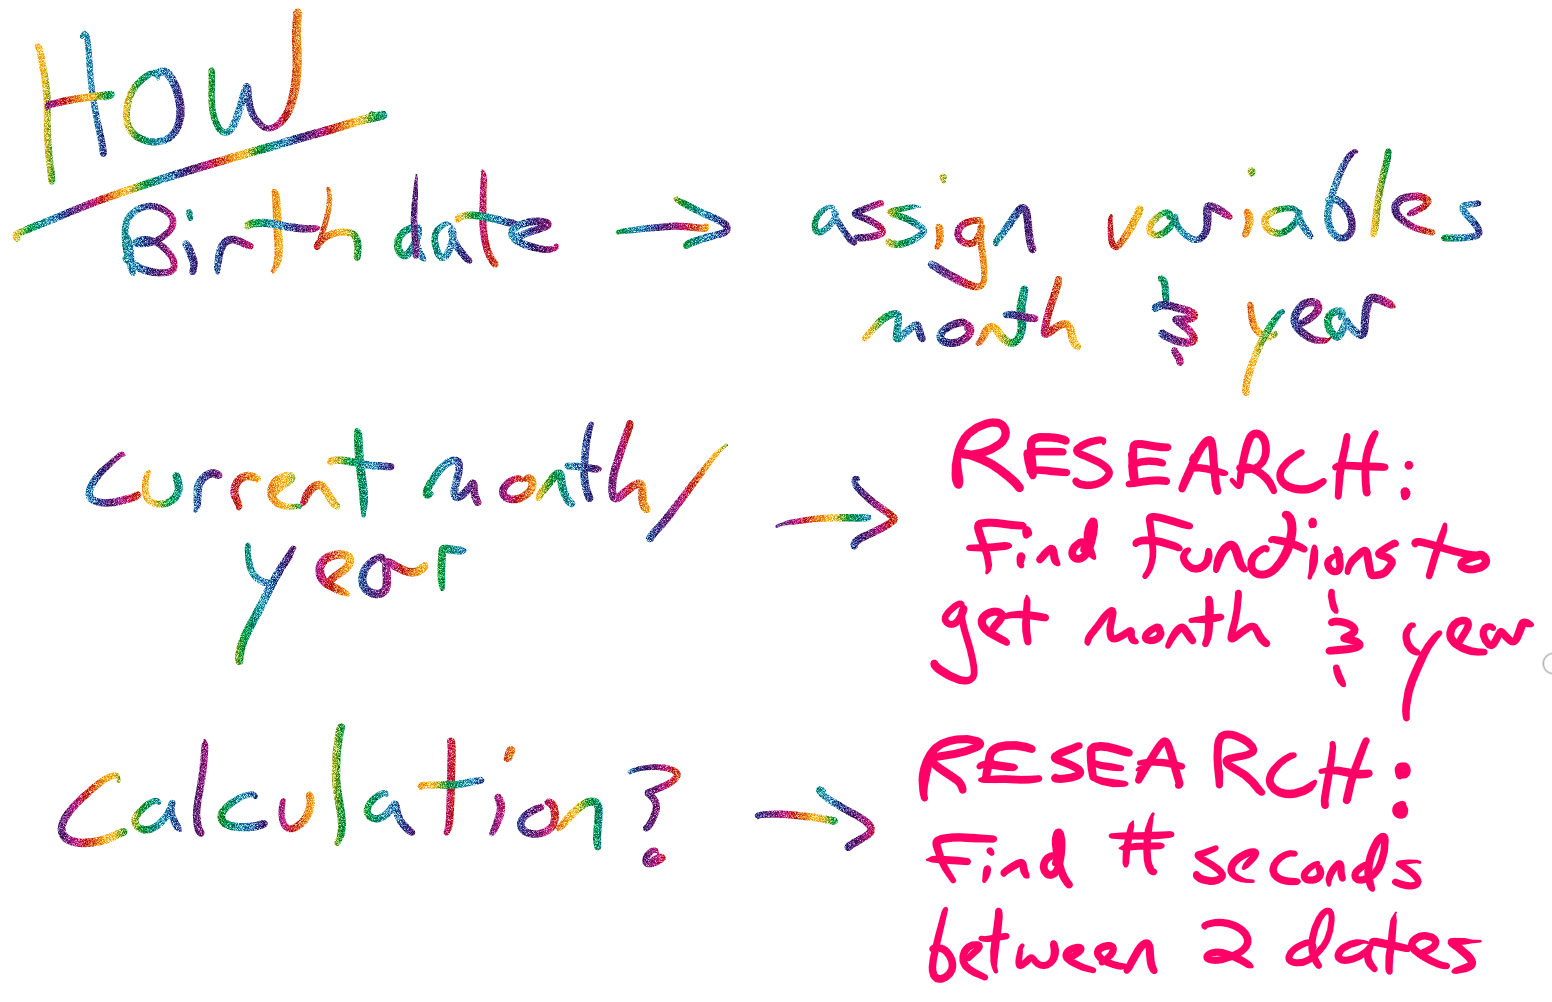 HOW
Birth date → assign variables
month & year
current month/
year → RESEARCH:
Find Functions to
get month & year
Calculation? → RESEARCH:
Find # seconds
between 2 dates